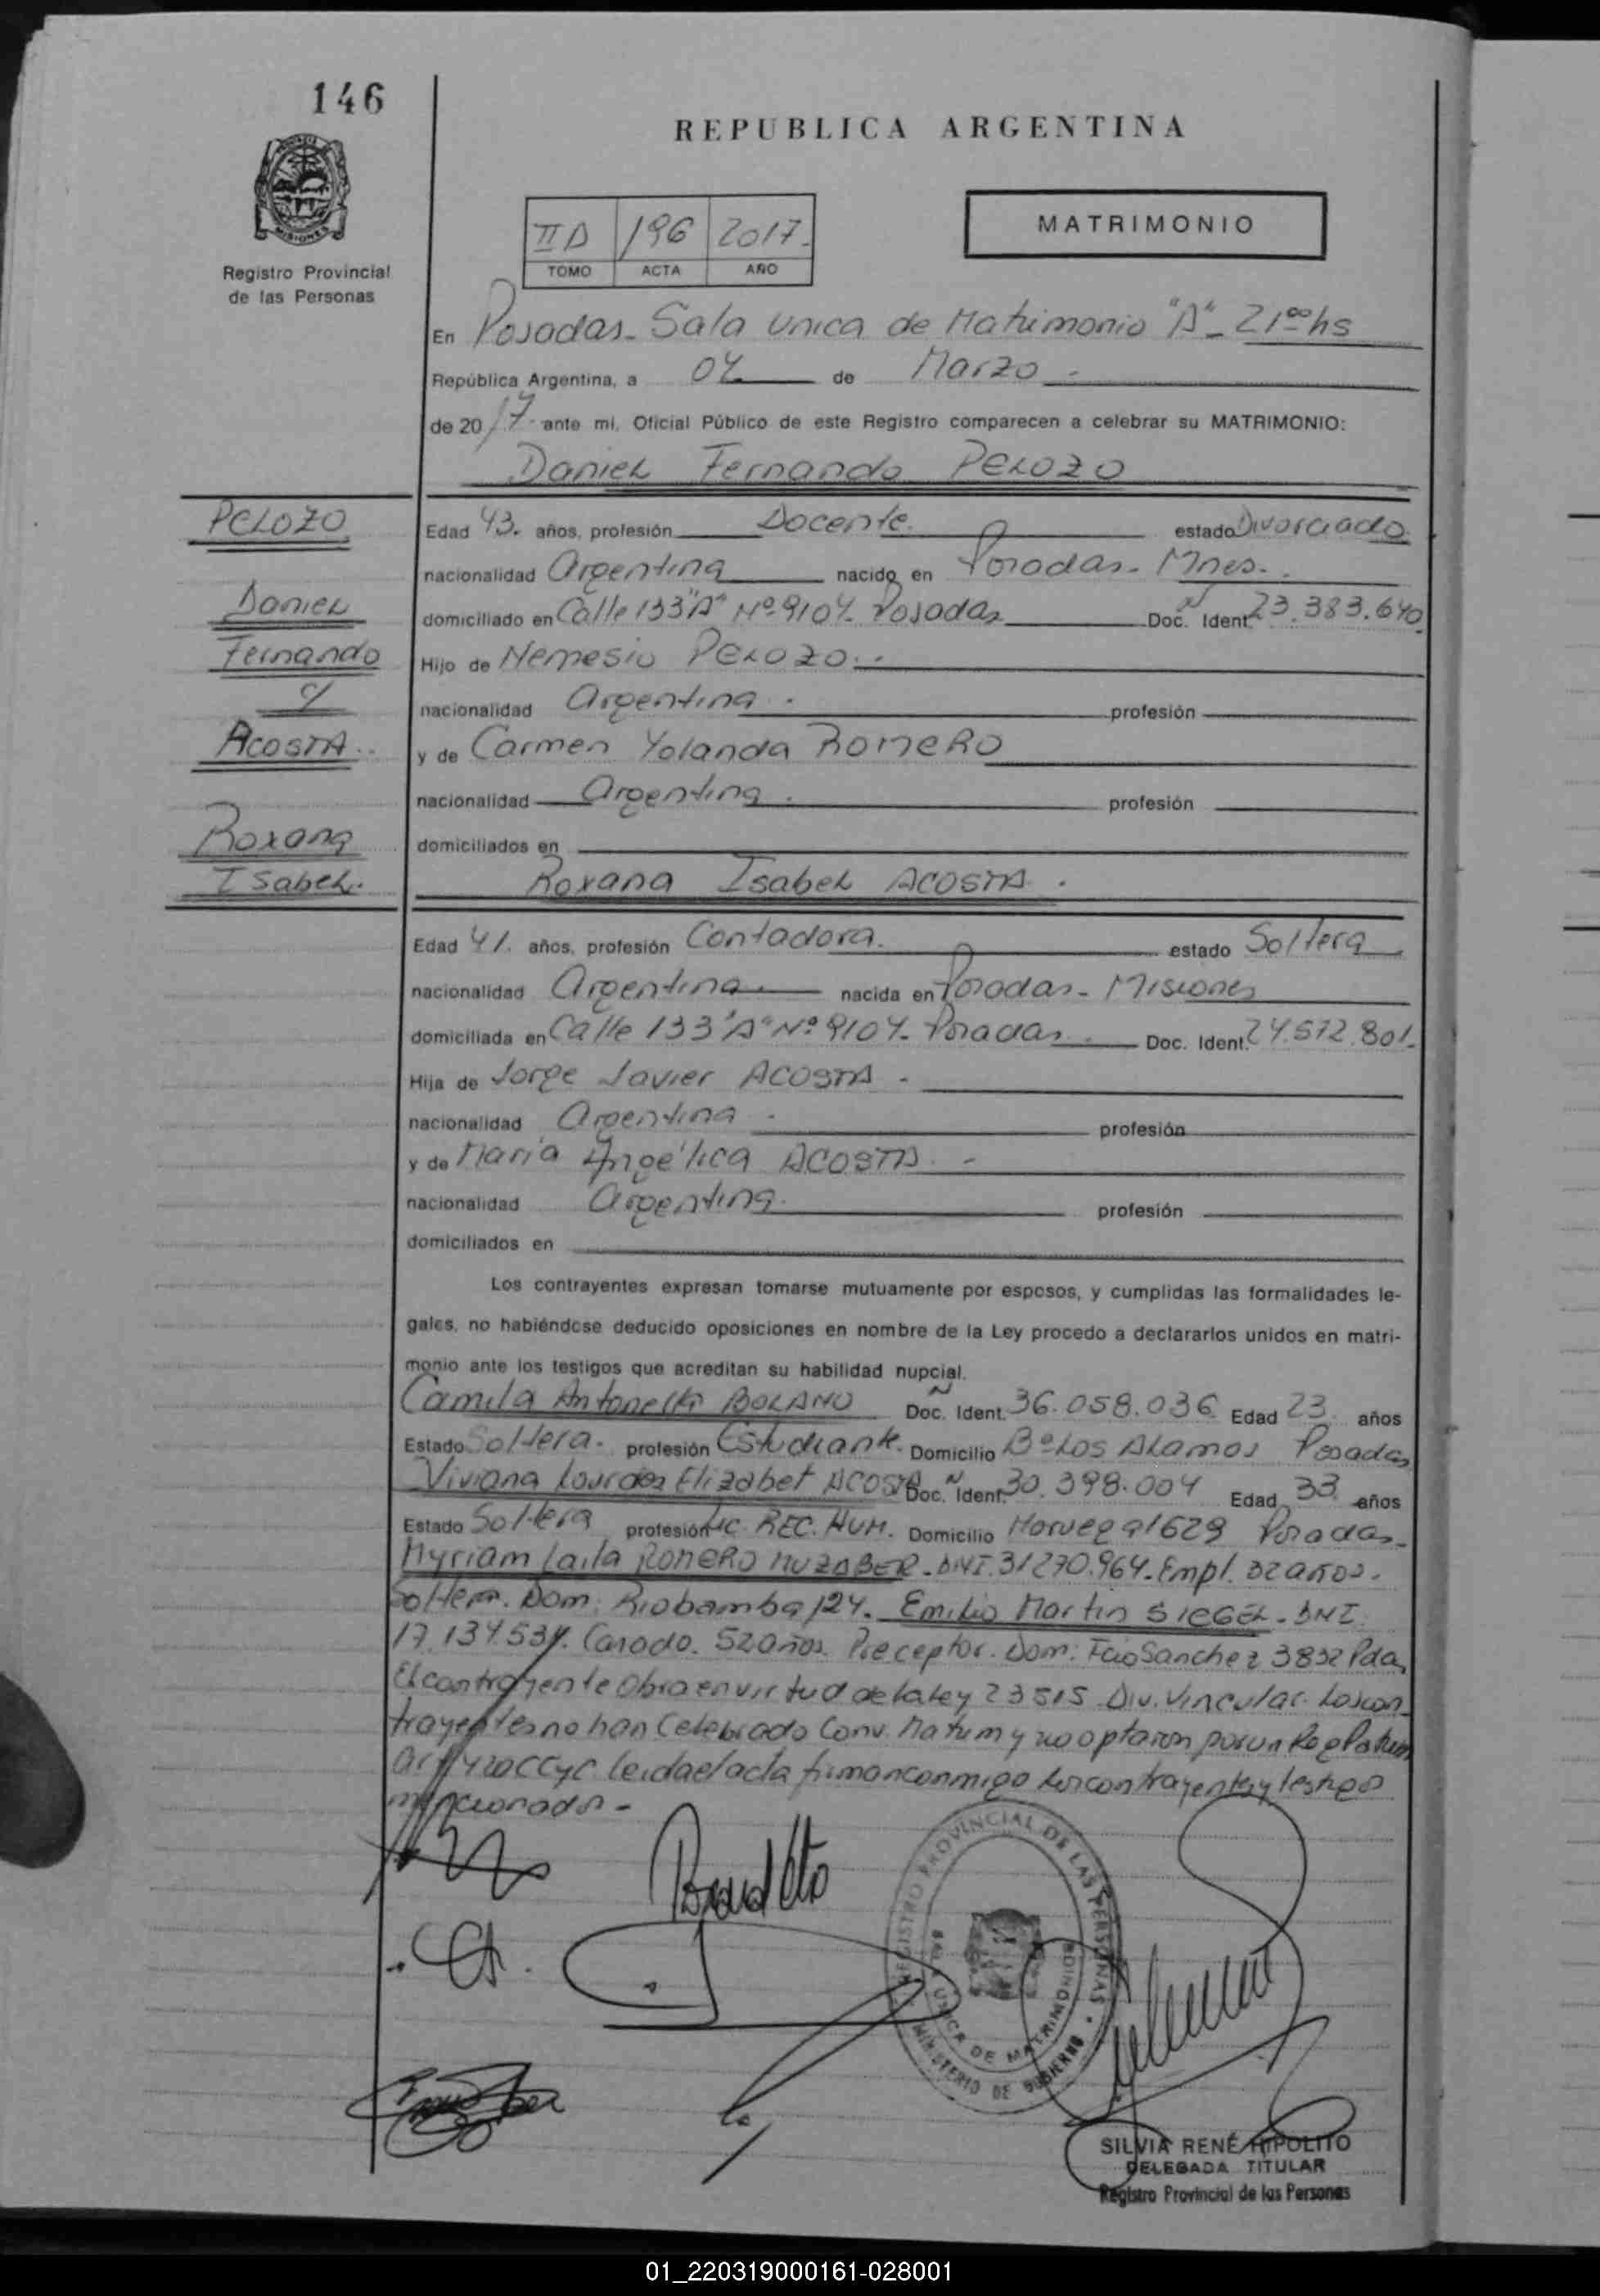 146
REPUBLICA ARGENTINA
MISIONES
Registro Provincial
de las Personas
II D 196 2017.
TOMO ACTA AÑO
MATRIMONIO
En Posadas - Sala Unica de Matrimonio "A" - 21 00 hs
República Argentina, a 04 de Marzo -
de 2017 ante mi, Oficial Público de este Registro comparecen a celebrar su MATRIMONIO:
Daniel Fernando PELOZO
PELOZO
Daniel
Fernando
y
ACOSTA
Roxana
Isabel.
Edad 43. años, profesión Docente. estado Divorciado
nacionalidad Argentina nacido en Posadas - Mnes.
domiciliado en Calle 133 "A" Nº 9104 - Posadas Doc. Ident. 23.383.640
Hijo de Nemesio PELOZO.
nacionalidad Argentina. profesión
y de Carmen Yolanda ROMERO
nacionalidad Argentina. profesión
domiciliados en
Roxana Isabel ACOSTA.
Edad 41. años, profesión Contadora. estado Soltera
nacionalidad Argentina. nacida en Posadas - Misiones
domiciliada en Calle 133 "A" Nº 9104 - Posadas Doc. Ident. 24.572.801.
Hija de Jorge Javier ACOSTA -
nacionalidad Argentina. profesión
y de María Angélica ACOSTA. -
nacionalidad Argentina. profesión
domiciliados en
Los contrayentes expresan tomarse mutuamente por esposos, y cumplidas las formalidades le-
gales, no habiéndose deducido oposiciones en nombre de la Ley procedo a declararlos unidos en matri-
monio ante los testigos que acreditan su habilidad nupcial.
Camila Antonella BOLAÑO Doc. Ident. 36.058.036 Edad 23 años
Estado Soltera. profesión Estudiante. Domicilio Bº Los Alamos Posadas
Viviana Lourdes Elizabet ACOSTA Doc. Ident. 30.398.004 Edad 33 años
Estado Soltera profesión Lic. REC. HUM. Domicilio Noruega 1629 Posadas -
Myriam Laila ROMERO - DNI. 31270.964 - Empl. 32 años.
Soltera. Dom: Riobamba 124. Emilio Martin SIEGEL - DNI
17.134.534. Casado. 52 años. Preceptor. Dom: Fcio Sanchez 3832 Pdas
El contrayente obra en virtud de la ley 23515 Div. Vincular. Los con
trayentes no han celebrado Conv. Matrim y no optaron por un Reg Patrim
Art 420 CCyC. leida el acta firman conmigo los contrayentes y testigos
mencionados -
REGISTRO PROVINCIAL DE LAS PERSONAS
SALA UNICA DE MATRIMONIO
MINISTERIO DE GOBIERNO
SILVIA RENÉ HIPOLITO
DELEGADA TITULAR
Registro Provincial de las Personas
01_220319000161-028001